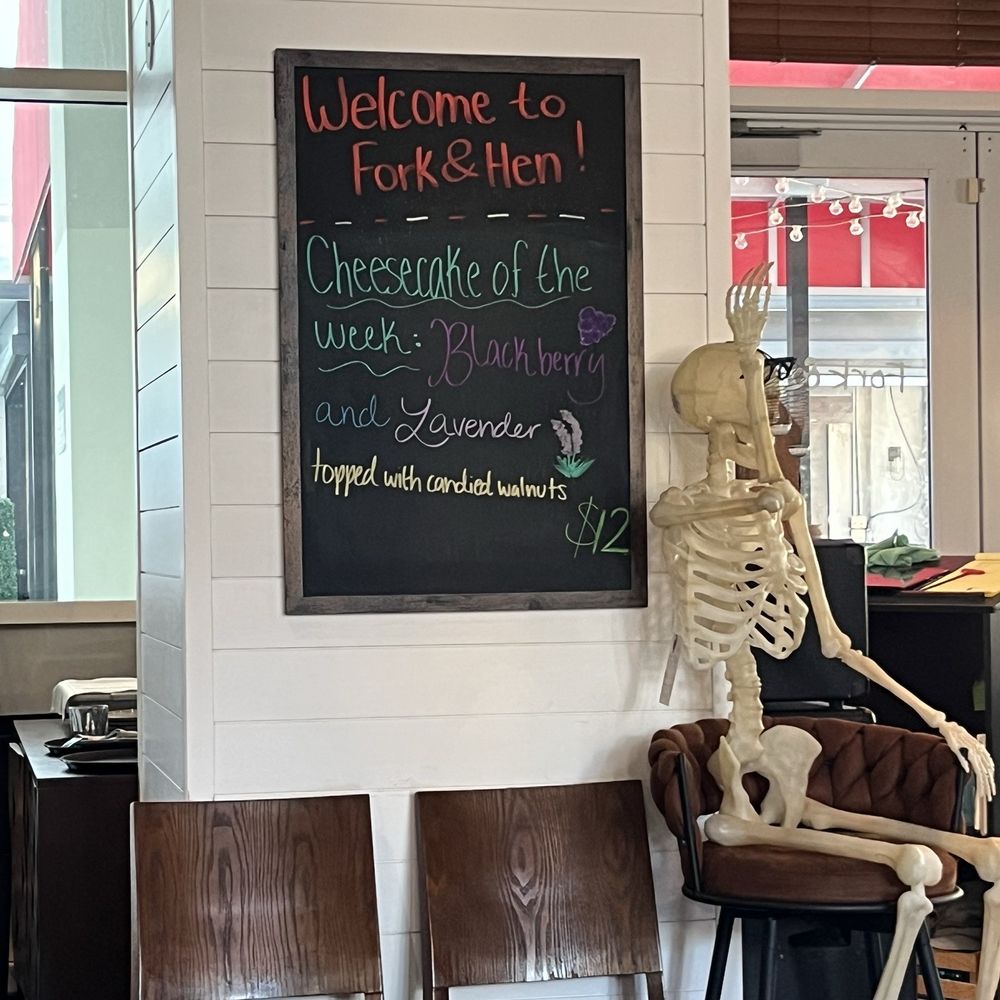 Welcome to
Fork & Hen!
Cheesecake of the
week: Blackberry
and Lavender
topped with candied walnuts
$12
Fork &